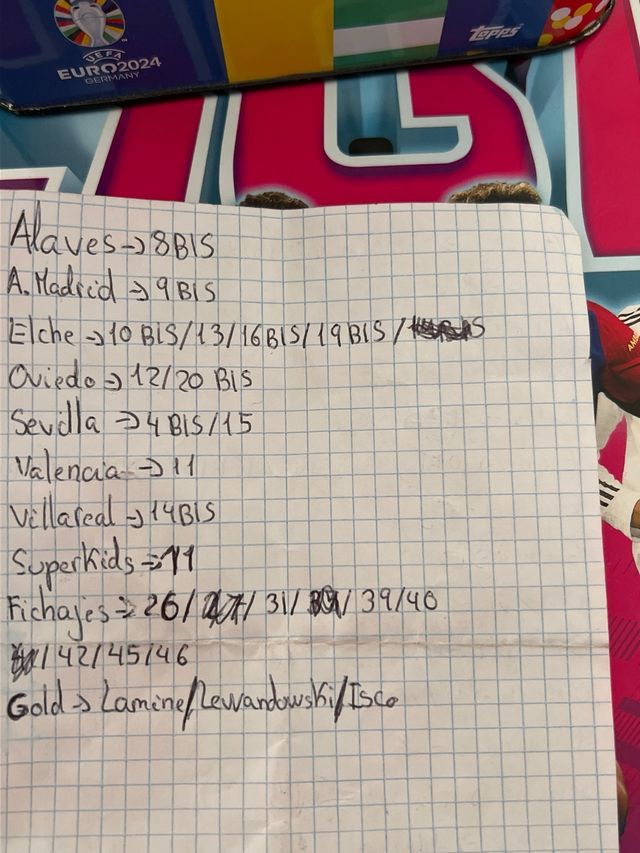 UEFA
EURO2024
GERMANY
Topps
Alaves→8BIS
A. Madrid→9BIS
Elche→10 BIS/13/16BIS/19BIS/
Oviedo→12/20 BIS
Sevilla→4BIS/15
Valencia→11
Villareal→14BIS
SuperKids→11
Fichajes→26/ / 31/ / 39/40
/42/45/46
Gold→Lamine/Lewandowski/Isco